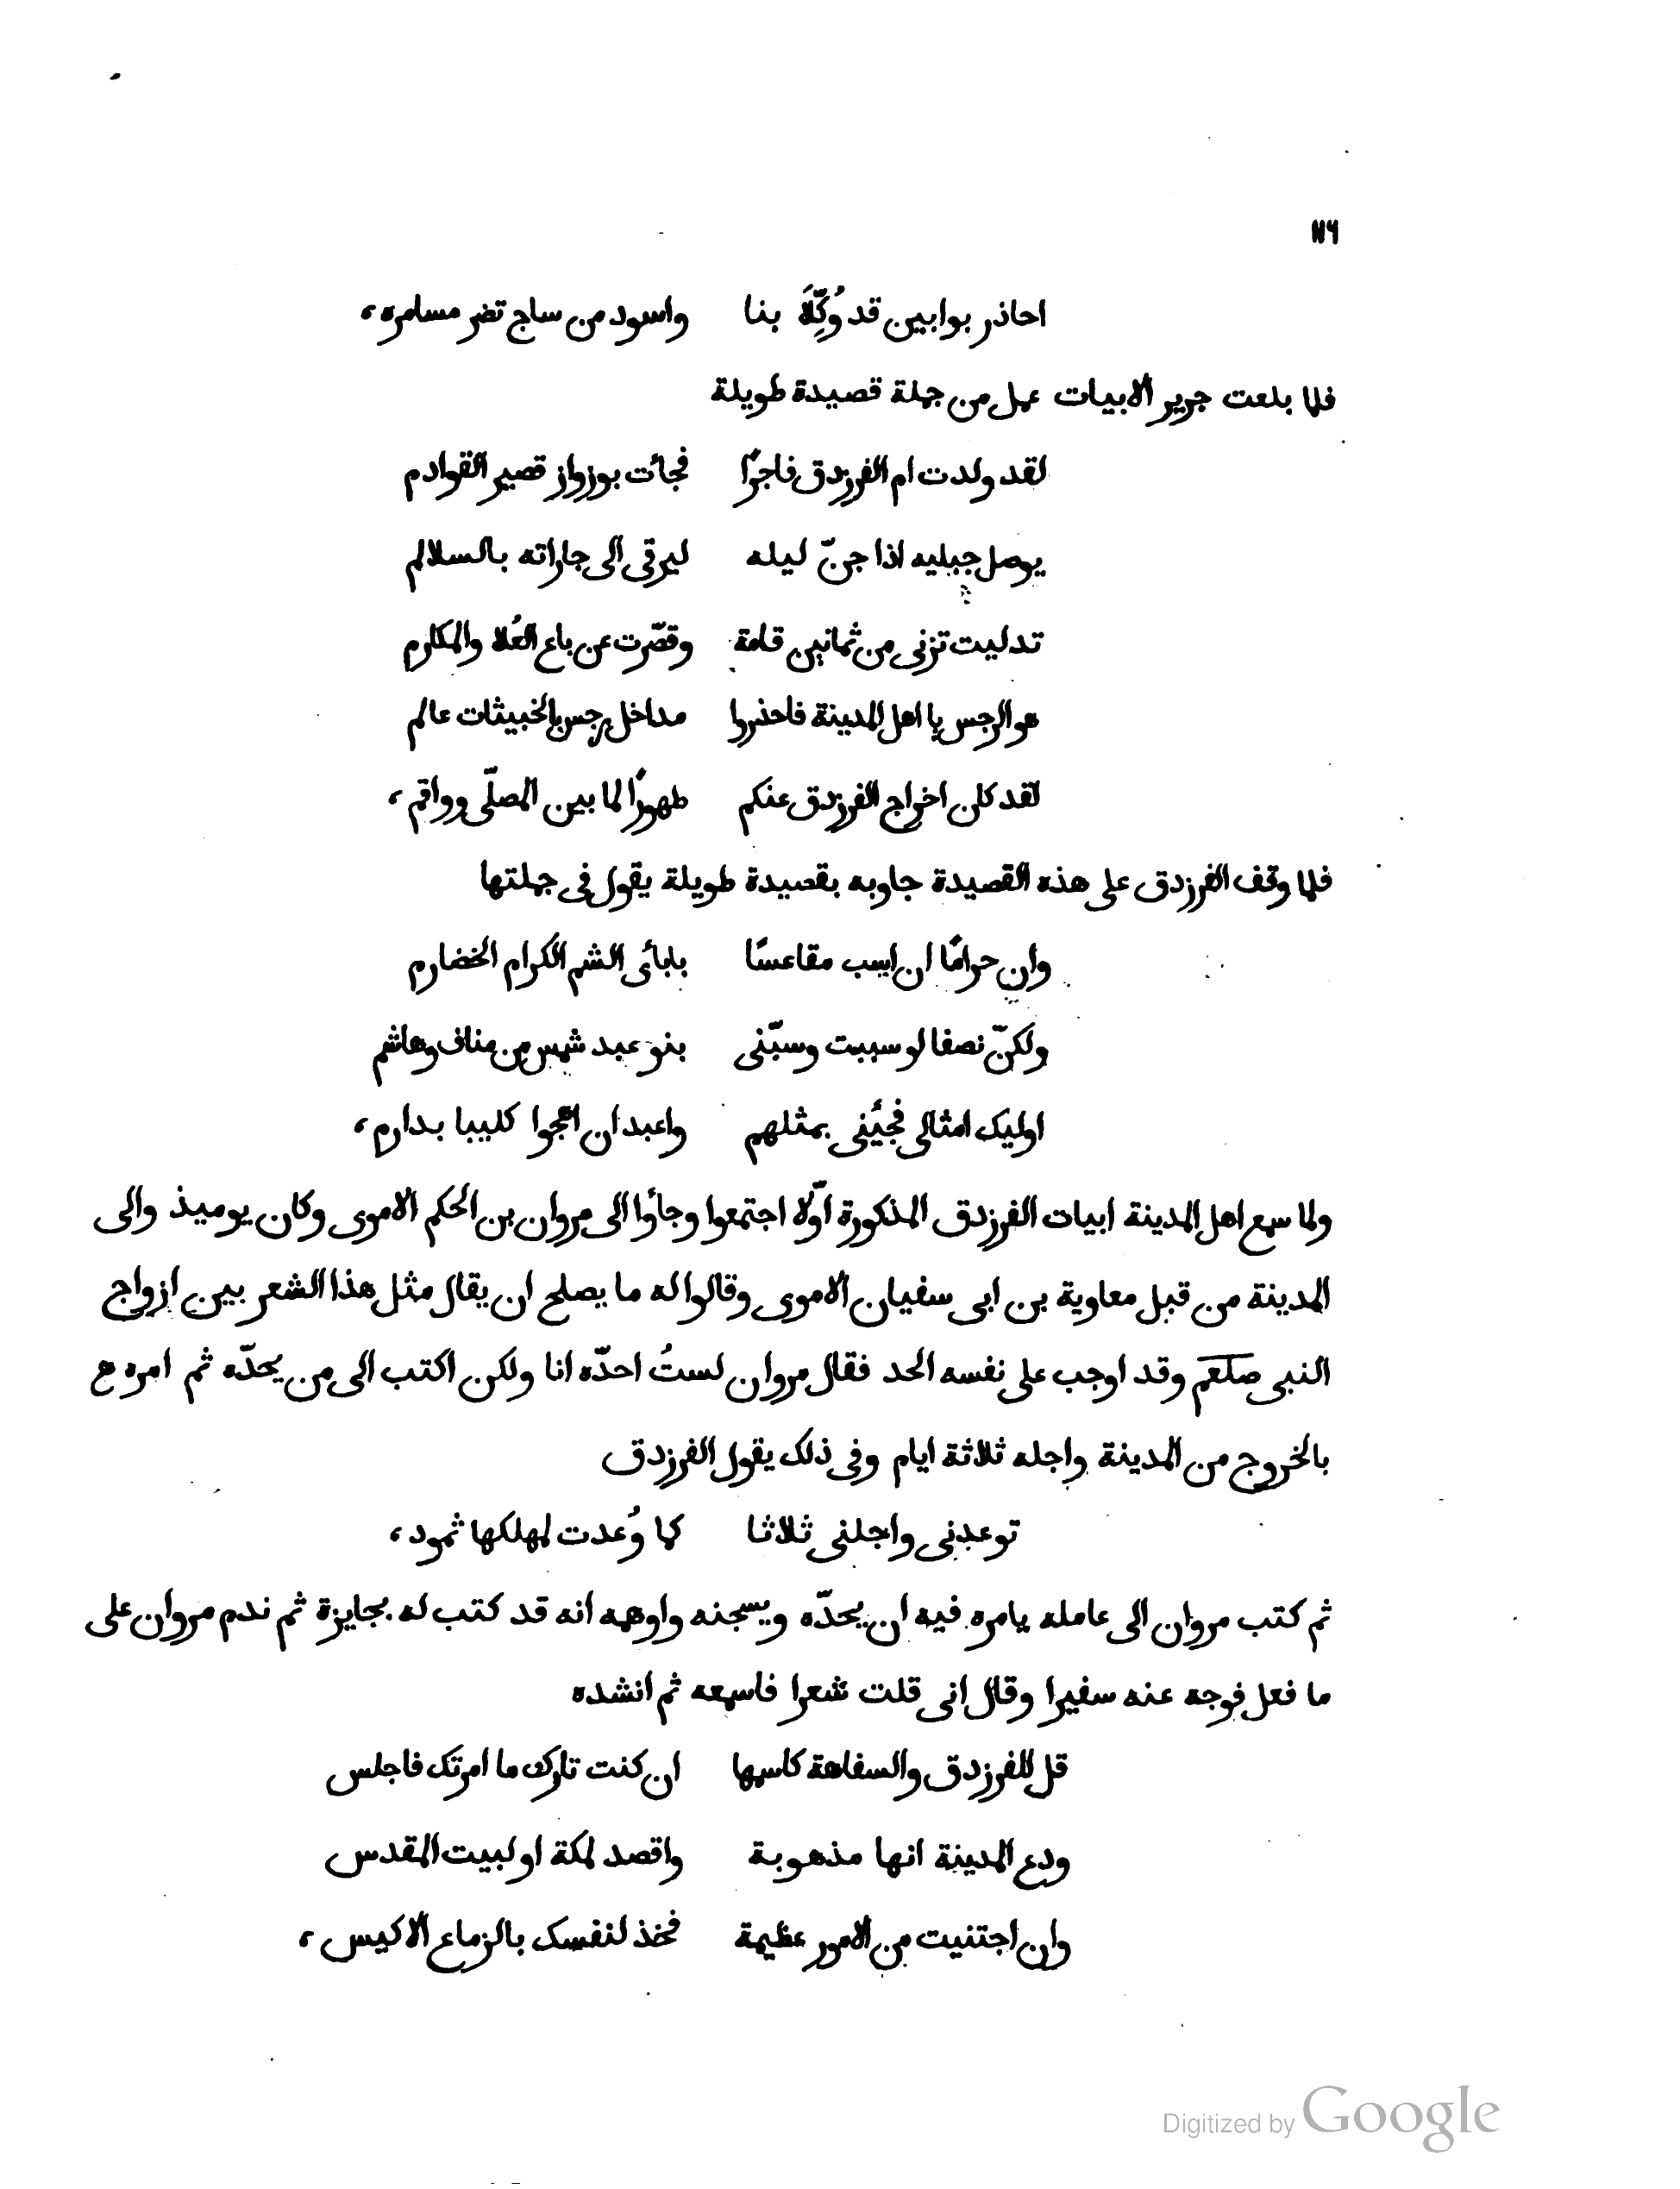 ١١٦
احاذر بوابين قد وُكِّلَا بنا واسود من ساج تضر مسامره،
فلما بلعت جرير الابيات عمل من جملة قصيدة طويلة
لقد ولدت ام الفرزدق فاجرًا فجأت بوزواز قصير القوادم
يوصل جبليه اذا جنّ ليله ليرقى الى جاراته بالسلالم
تدليت تزنى من ثمانين قامة وقصّرت عن باع العُلا والمكارم
هو الرجس يا اهل المدينة فاحذروا مداخل رجس بالخبيثات عالم
لقد كان اخراج الفرزدق عنكم طهورًا لما بين المصلّى وواقم،
فلما وقف الفرزدق على هذه القصيدة جاوبه بقصيدة طويلة يقول فى جملتها
وان حرامًا ان اسب مقاعسًا بابائى الشم الكرام الخضارم
ولكنّ نصفا لو سببت وسبّنى بنو عبد شمس من مناف وهاشم
اوليك امثالى فجئنى بمثلهم واعبد ان اهجوا كليبا بدارم،
ولما سمع اهل المدينة ابيات الفرزدق المذكورة اوّلا اجتمعوا وجأوا الى مروان بن الحكم الاموى وكان يوميذ والى
المدينة من قبل معاوية بن ابى سفيان الاموى وقالوا له ما يصلح ان يقال مثل هذا الشعر بين ازواج
النبى صلعم وقد اوجب على نفسه الحد فقال مروان لستُ احدّه انا ولكن اكتب الى من يحدّه ثم امره
بالخروج من المدينة واجله ثلاثة ايام وفى ذلك يقول الفرزدق
توعدنى واجلنى ثلاثا كما وُعدت لمهلكها ثمود،
ثم كتب مروان الى عامله يامره فيه ان يحدّه ويسجنه واوهمه انه قد كتب له بجايزة ثم ندم مروان على
ما فعل فوجه عنه سفيرا وقال انى قلت شعرا فاسمعه ثم انشده
قل للفرزدق والسفاهة كاسمها ان كنت تارك ما امرتك فاجلس
ودع المدينة انها مذهوبة واقصد لمكة او لبيت المقدس
وان اجتنيت من الامور عظيمة فخذ لنفسك بالزماع الاكيس،
Digitized by Google